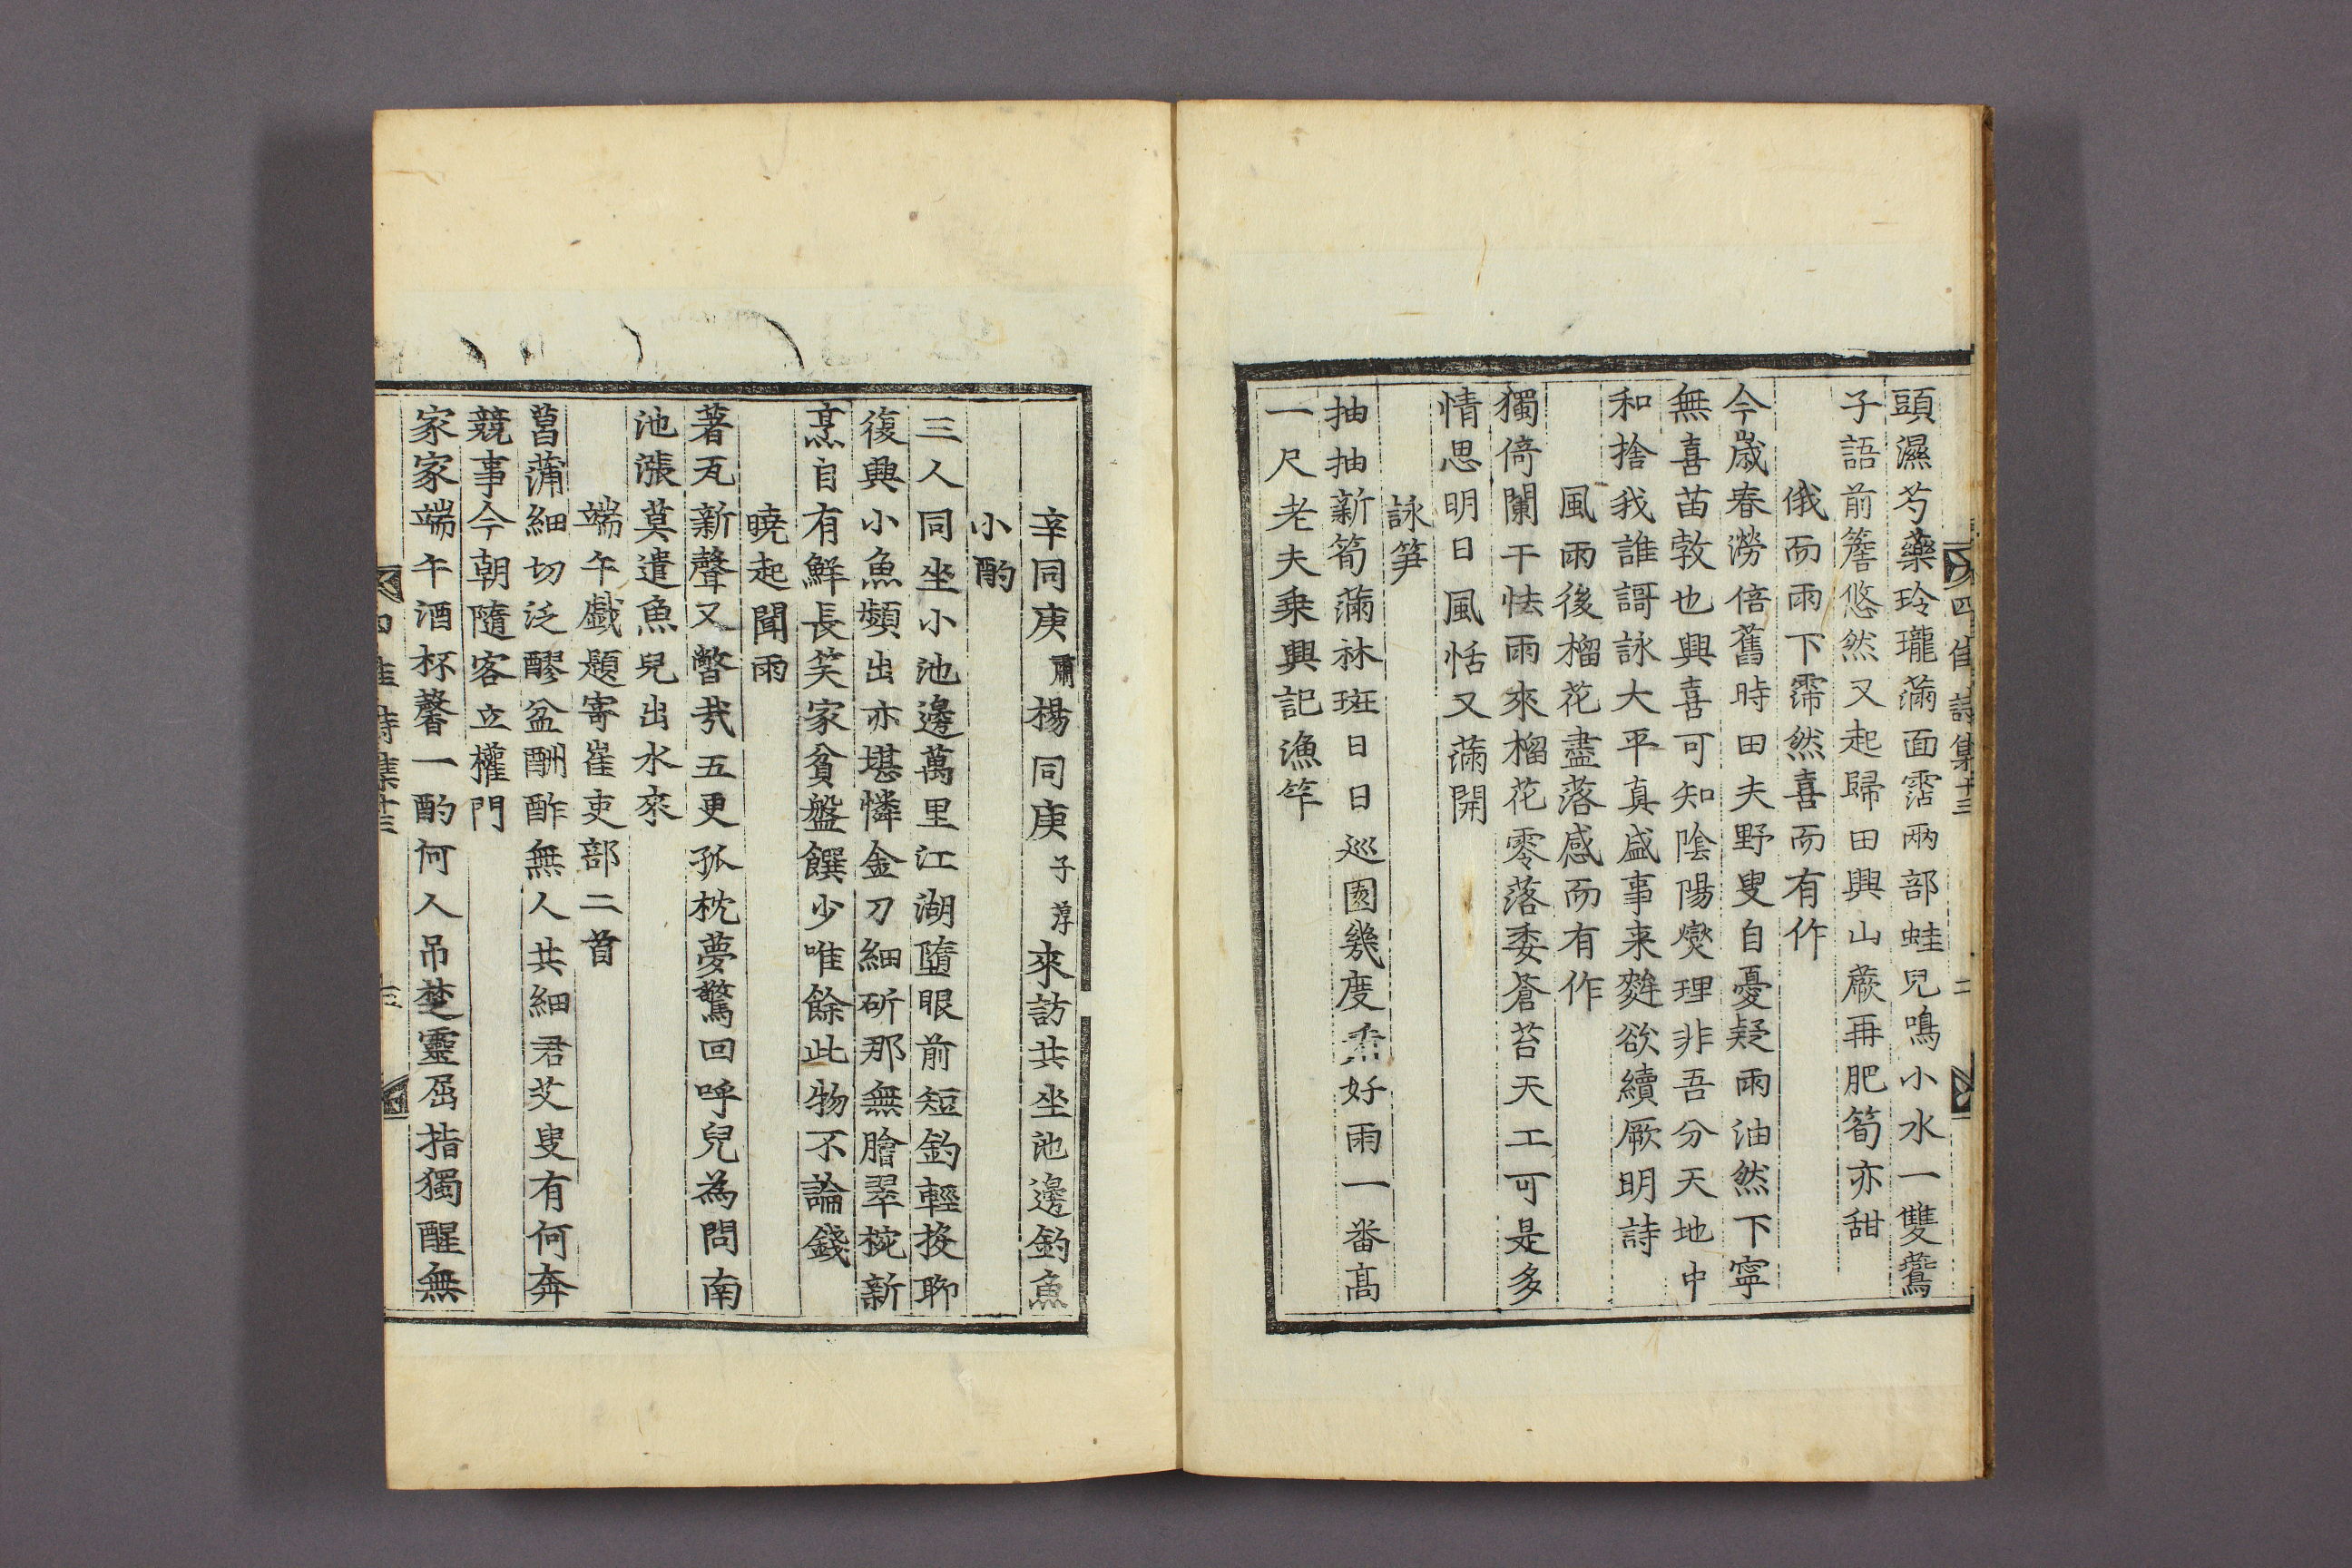 四佳詩集十三
二
頭濕芍藥玲瓏滿面霑兩部蛙兒鳴小水一雙鷰
子語前簷悠然又起歸田興山蕨再肥筍亦甜
俄而雨下霈然喜而有作
今歲春澇倍舊時田夫野叟自憂疑雨油然下寧
無喜苗敦也興喜可知陰陽燮理非吾分天地中
和捨我誰謌詠大平真盛事来麰欲續厥明詩
風雨後榴花盡落感而有作
獨倚闌干怯雨來榴花零落委蒼苔天工可是多
情思明日風恬又滿開
詠笋
抽抽新筍滿林斑日日巡園幾度看好雨一番高
一尺老夫乗興記漁竿
辛同庚肅楊同庚子諄來訪共坐池邊釣魚
小酌
三人同坐小池邊萬里江湖墮眼前短釣輕投聊
復興小魚頻出亦堪憐金刀細斫那無膾翠椀新
烹自有鮮長笑家貧盤饌少唯餘此物不論錢
曉起聞雨
著瓦新聲又瞥㢤五更孤枕夢驚回呼兒為問南
池漲莫遣魚兒出水來
端午戯題寄崔吏部二首
菖蒲細切泛醪盆酬酢無人共細君艾叟有何奔
競事今朝隨客立權門
家家端午酒杯馨一酌何人吊楚靈屈指獨醒無
詩集十三
三